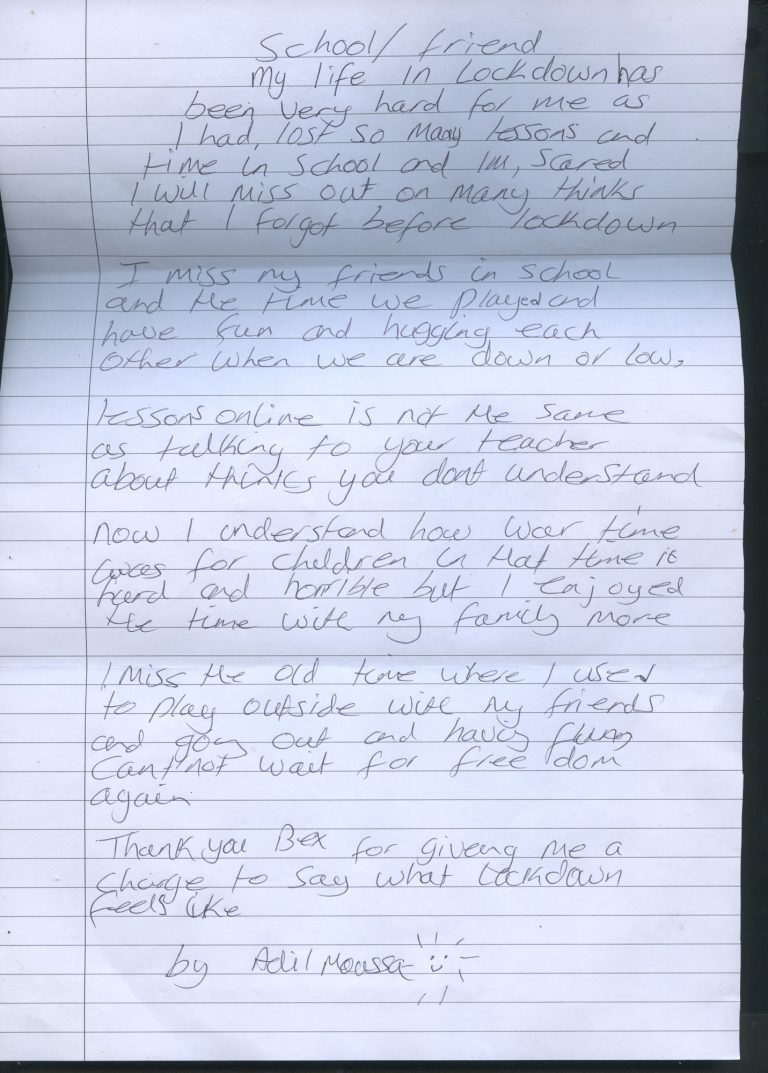 School / friend
My life in Lockdown has
been very hard for me as
I had, lost so many lessons and
time in School and Im, Scared
I will miss out on many thinks
that I forgot before lockdown
I miss my friends in school
and the time we played and
have fun and hugging each
other when we are down or low,
lessons online is not the same
as talking to your teacher
about thinks you dont understand
now I understand how war time
for children in that time it
hard and horrible but I enjoyed
the time with my family more
I miss the old time where I used
to play outside with my friends
and going out and having
Cant not wait for free dom
again
Thank you Bex for giveng me a
to say what Lockdown
feels like
by Adil Moussa